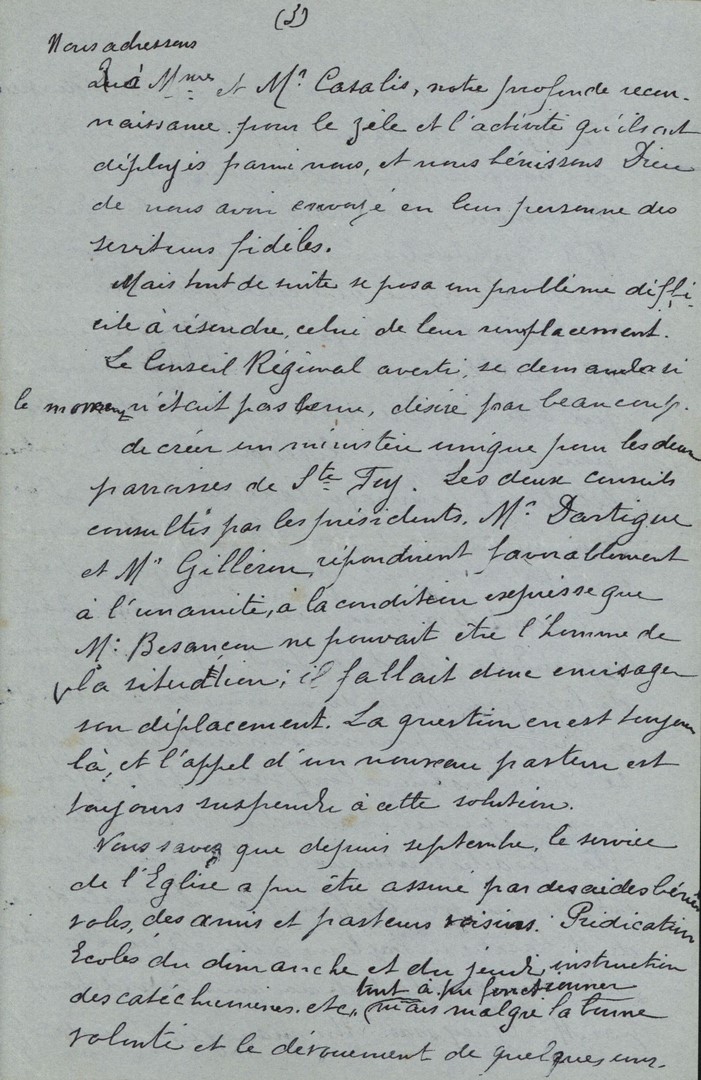 (3)
Nous adressons
à Mme et Mr Casalis, notre profonde recon-
naissance pour le zèle et l'activité qu'ils ont
déployés parmi nous, et nous bénissons Dieu
de nous avoir envoyé en leur personne des
serviteurs fidèles.
Mais tout de suite se posa un problème diffi-
cile à résoudre, celui de leur remplacement.
Le Conseil Régional averti, se demanda si
le moment n'était pas venu, désiré par beaucoup.
de créer un ministère unique pour les deux
paroisses de Ste Foy. Les deux conseils
consultés par les présidents, Mr Dartigue
et Mr Gilléron, répondirent favorablement
à l'unamité, à la condition expresse que
Mr Besançon ne pouvait être l'homme de
la situation; il fallait donc envisager
son déplacement. La question en est toujours
là, et l'appel d'un nouveau pasteur est
toujours suspendu à cette solution.
Vous savez que depuis septembre, le service
de l'Eglise a pu être assuré par des aides béné-
voles, des amis et pasteurs voisins. Prédication
Ecoles du dimanche et du jeudi, instruction
des catéchumènes. etc, tout a pu fonctionner
mais malgré la bonne
volonté et le dévouement de quelques uns.